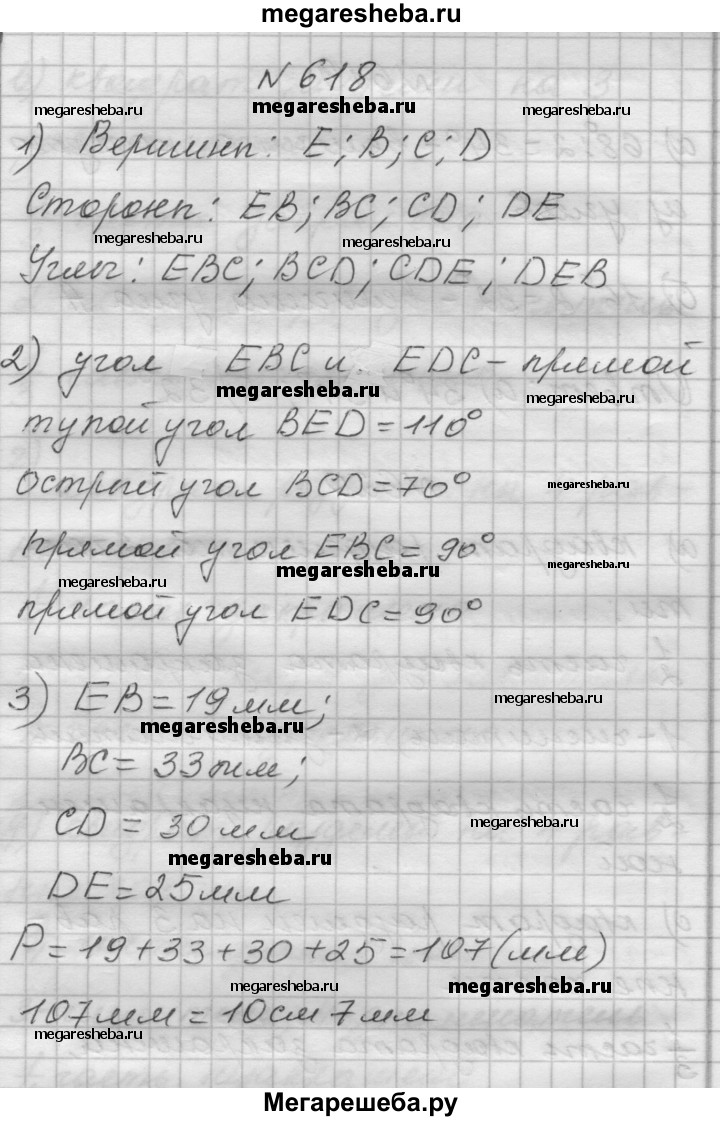 megaresheba.ru
N 618
megaresheba.ru megaresheba.ru megaresheba.ru
1) Вершины: E; B; C; D
Стороны: EB; BC; CD; DE
megaresheba.ru megaresheba.ru
Углы: EBC; BCD; CDE; DEB
2) угол EBC и EDC – прямой
megaresheba.ru megaresheba.ru
тупой угол BED = 110°
острый угол BCD = 70°
megaresheba.ru
прямой угол EBC = 90°
megaresheba.ru megaresheba.ru
прямой угол EDC = 90°
3) EB = 19 мм;
megaresheba.ru megaresheba.ru
BC = 33 мм;
CD = 30 мм
megaresheba.ru megaresheba.ru
DE = 25 мм
P = 19 + 33 + 30 + 25 = 107 (мм)
megaresheba.ru megaresheba.ru
107 мм = 10 см 7 мм
megaresheba.ru
Мегарешеба.ру